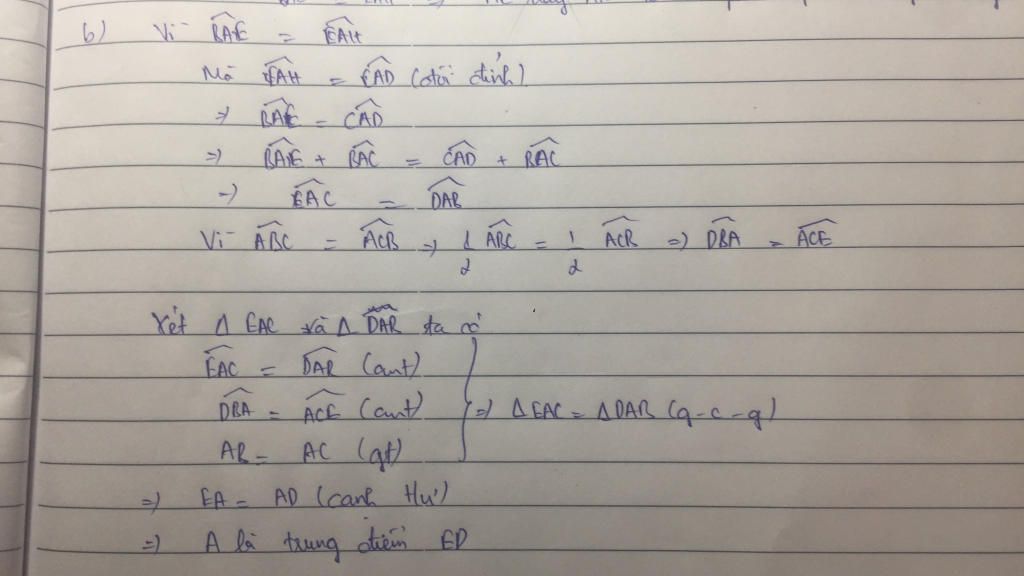 b) Vì BAE = EAH
Mà EAH = CAD (đối đỉnh)
=> BAE = CAD
=> BAE + BAC = CAD + BAC
=> EAC = DAB
Vì ABC = ACB => 1/2 ABC = 1/2 ACB => DBA = ACE
Xét Δ EAC và Δ DAB ta có
EAC = DAB (cmt)
DBA = ACE (cmt) => Δ EAC = Δ DAB (g-c-g)
AB = AC (gt)
=> EA = AD (cạnh t/ư)
=> A là trung điểm ED